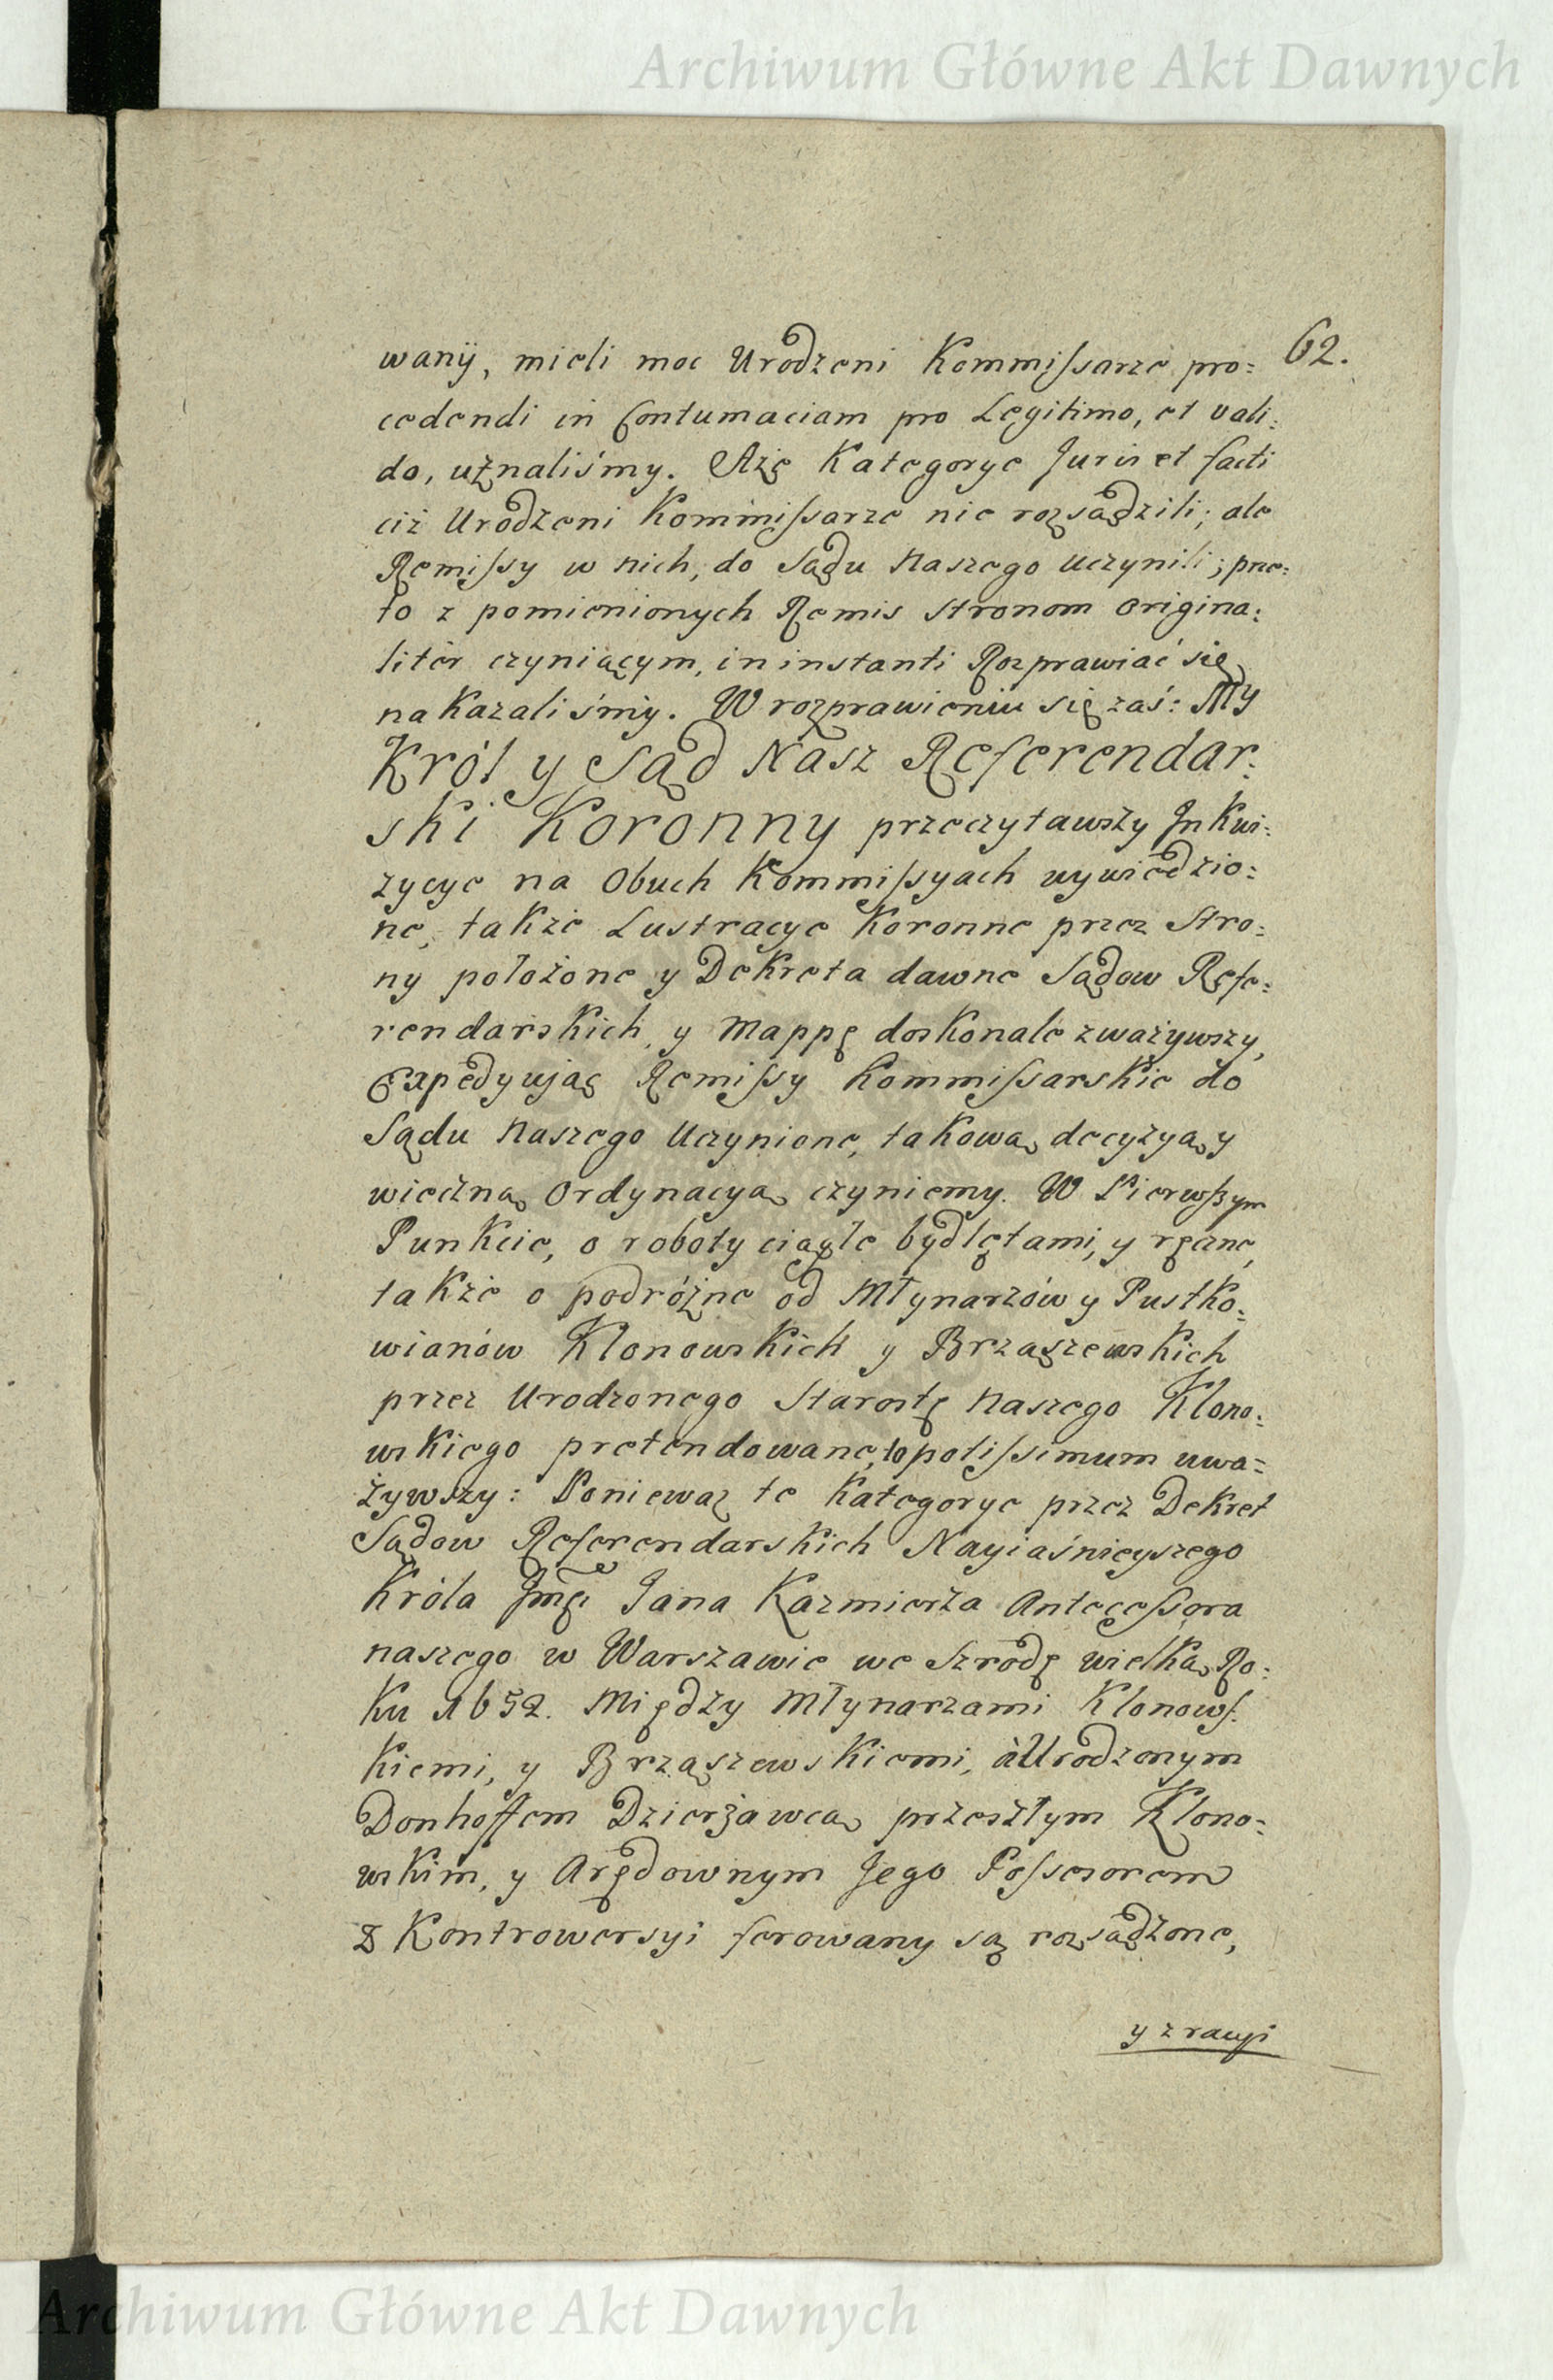 Archiwum Główne Akt Dawnych
62.
wanÿ, mieli moc Urodzeni Kommissarze pro=
cedendi in Contumaciam pro Legitimo, et vali=
do, uznaliśmy. Aże Kategorye Juris et facti
ciż Urodzeni Kommissarze nie rozsądzili; ale
Remissy w nich, do Sądu Naszego uczynili; prze=
to z pomienionych Remis Stronom origina=
litèr czyniącym, in instanti Rozprawiać się
nakazaliśmy. W rozprawieniu się zaś: My
Król y Sąd Nasz Referendar=
ski Koronny przeczytawszy Jnkwi=
zycye na Obuch Kommissyach wywiedzio=
ne, także Lustracye Koronne przez Stro=
ny położone y Dekreta dawne Sądow Refe=
rendarskich, y Mappę doskonale zważywszy,
Expedyując Remissy Kommissarskie do
Sądu Naszego Uczynione, takową decyzyą y
wieczną Ordynacyą czyniemy. W Pierwszym
Punkcie, o roboty ciągłe bydlętami, y ręczne,
także o podróżne od Młynarzów y Pustko=
wianów Klonowskich y Brząszewskich
przez Urodzonego Starostę Naszego Klono=
wskiego pretendowane, to potissimum uwa=
żywszy: Ponieważ te Kategorye przez Dekret
Sądow Referendarskich Nayiaśnieyszego
Króla Jmci Jana Kazmierza Antecessora
naszego w Warszawie we Szrodę wielką Ro=
ku 1652. Między Młynarzami Klonows=
kiemi, y Brząszewskiemi, à Urodzonym
Donhoffem Dzierżawcą przeszłym Klono=
wskim, y Arędownym Jego Possesorem
z Kontrowersyi ferowany są rozsądzone,
y z racyi
Archiwum Główne Akt Dawnych